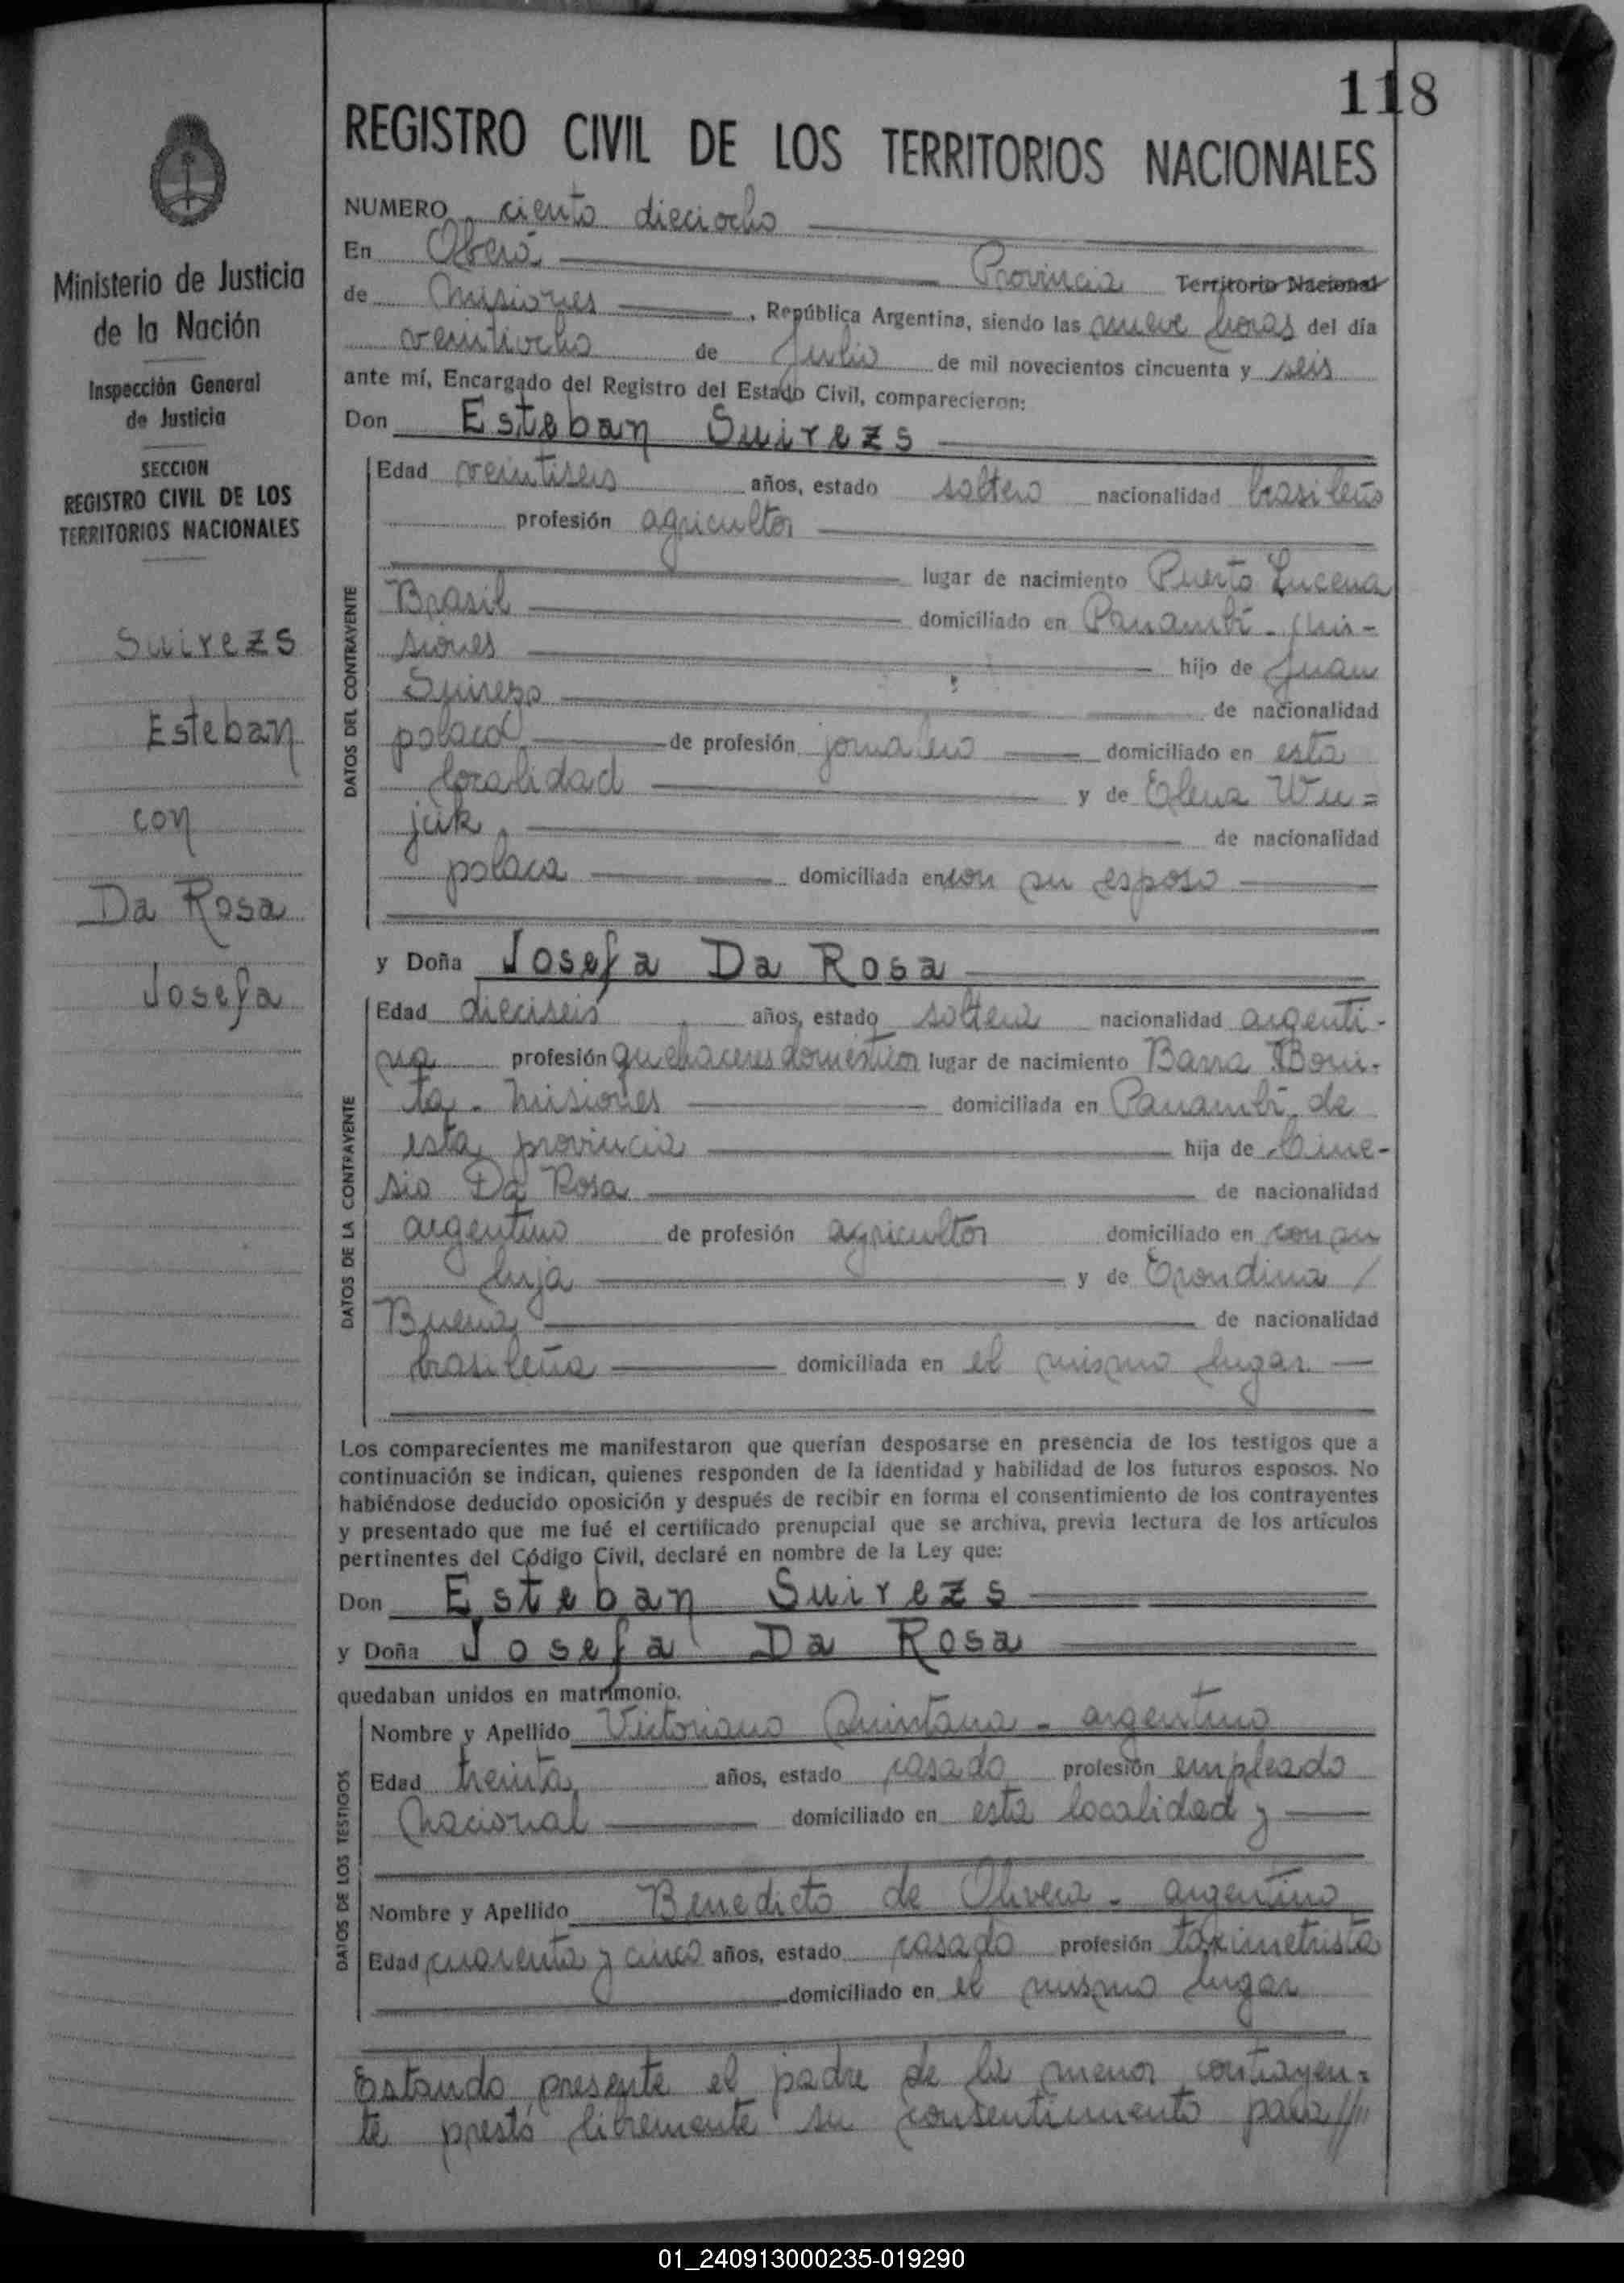 118
REGISTRO CIVIL DE LOS TERRITORIOS NACIONALES
NUMERO ciento dieciocho
En Oberá Provincia Territorio Nacional
de Misiones, República Argentina, siendo las nueve horas del día
veintiocho de Julio de mil novecientos cincuenta y seis
ante mí, Encargado del Registro del Estado Civil, comparecieron:
Don Esteban Suirezs
Edad veintiseis años, estado soltero nacionalidad brasileño
profesión agricultor
lugar de nacimiento Puerto Lucena
Brasil domiciliado en Panambí - Mi-
siones hijo de Juan
Suirezs de nacionalidad
polaco de profesión jornalero domiciliado en esta
localidad y de Elena Wu=
jcik de nacionalidad
polaca domiciliada en con su esposo
DATOS DEL CONTRAYENTE
y Doña Josefa Da Rosa
Edad dieciseis años, estado soltera nacionalidad argenti-
na profesión quehaceres domésticos lugar de nacimiento Barra Boni-
ta - Misiones domiciliada en Panambí de
esta provincia hija de
sio Da Rosa de nacionalidad
argentino de profesión agricultor domiciliado en con su
hija y de Erondina /
de nacionalidad
brasileña domiciliada en el mismo lugar
DATOS DE LA CONTRAYENTE
Los comparecientes me manifestaron que querían desposarse en presencia de los testigos que a
continuación se indican, quienes responden de la identidad y habilidad de los futuros esposos. No
habiéndose deducido oposición y después de recibir en forma el consentimiento de los contrayentes
y presentado que me fué el certificado prenupcial que se archiva, previa lectura de los artículos
pertinentes del Código Civil, declaré en nombre de la Ley que:
Don Esteban Suirezs
y Doña Josefa Da Rosa
quedaban unidos en matrimonio.
Nombre y Apellido Victoriano Quintana - argentino
Edad treinta años, estado casado profesión empleado
nacional domiciliado en esta localidad y
Nombre y Apellido Benedicto de Olivera - argentino
Edad cuarenta y cinco años, estado casado profesión taximetrista
domiciliado en el mismo lugar
DATOS DE LOS TESTIGOS
Estando presente el padre de la menor contrayen=
te prestó libremente su consentimiento para //
Ministerio de Justicia
de la Nación
Inspección General
de Justicia
SECCION
REGISTRO CIVIL DE LOS
TERRITORIOS NACIONALES
Suirezs
Esteban
con
Da Rosa
Josefa
01_240913000235-019290